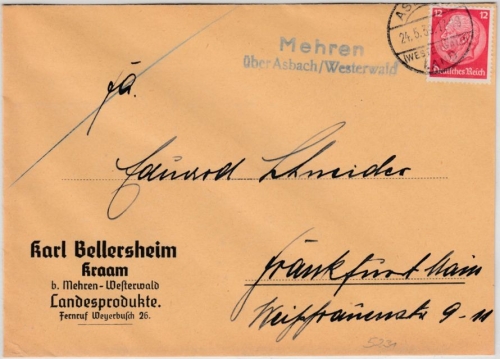 Mehren
über Asbach/Westerwald
AS
24.5.3
(WEST
12 12
Deutsches Reich
Fa.
Eduard Schneider
Karl Bellersheim
Kraam
b. Mehren-Westerwald
Landesprodukte.
Fernruf Weyerbusch 26.
Frankfurt Main
Weißfrauenstr 9-11